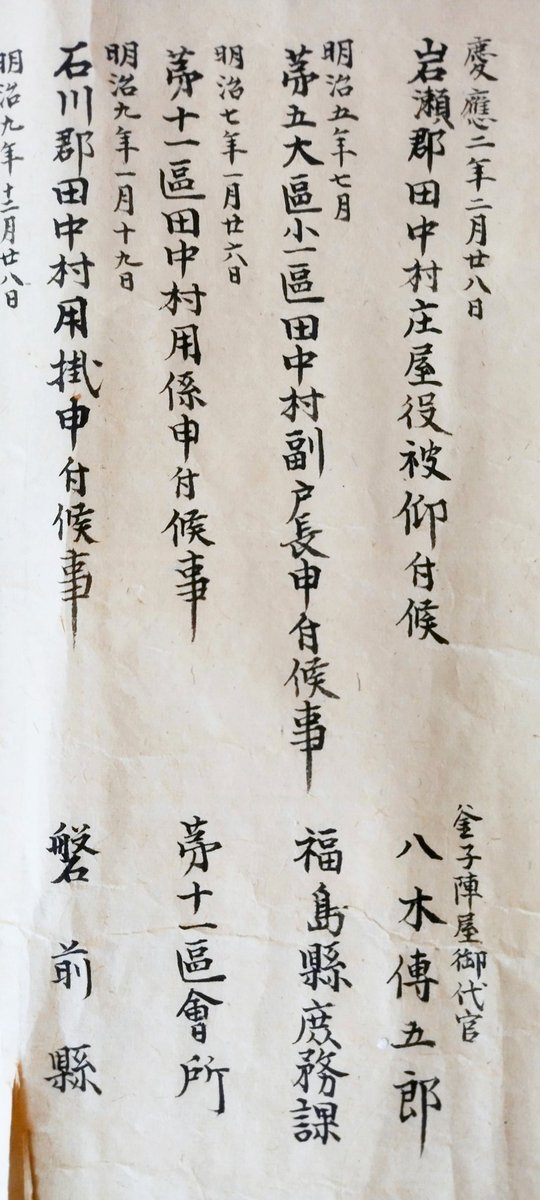 慶應二年二月廿八日
岩瀬郡田中村庄屋役被仰付候
釜子陣屋御代官
八木傳五郎
明治五年七月
苐五大區小一區田中村副戸長申付候事
福島縣庶務課
明治七年一月廿六日
苐十一區田中村用係申付候事
苐十一區會所
明治九年一月十九日
石川郡田中村用掛申付候事
磐前縣
明治九年十二月廿八日